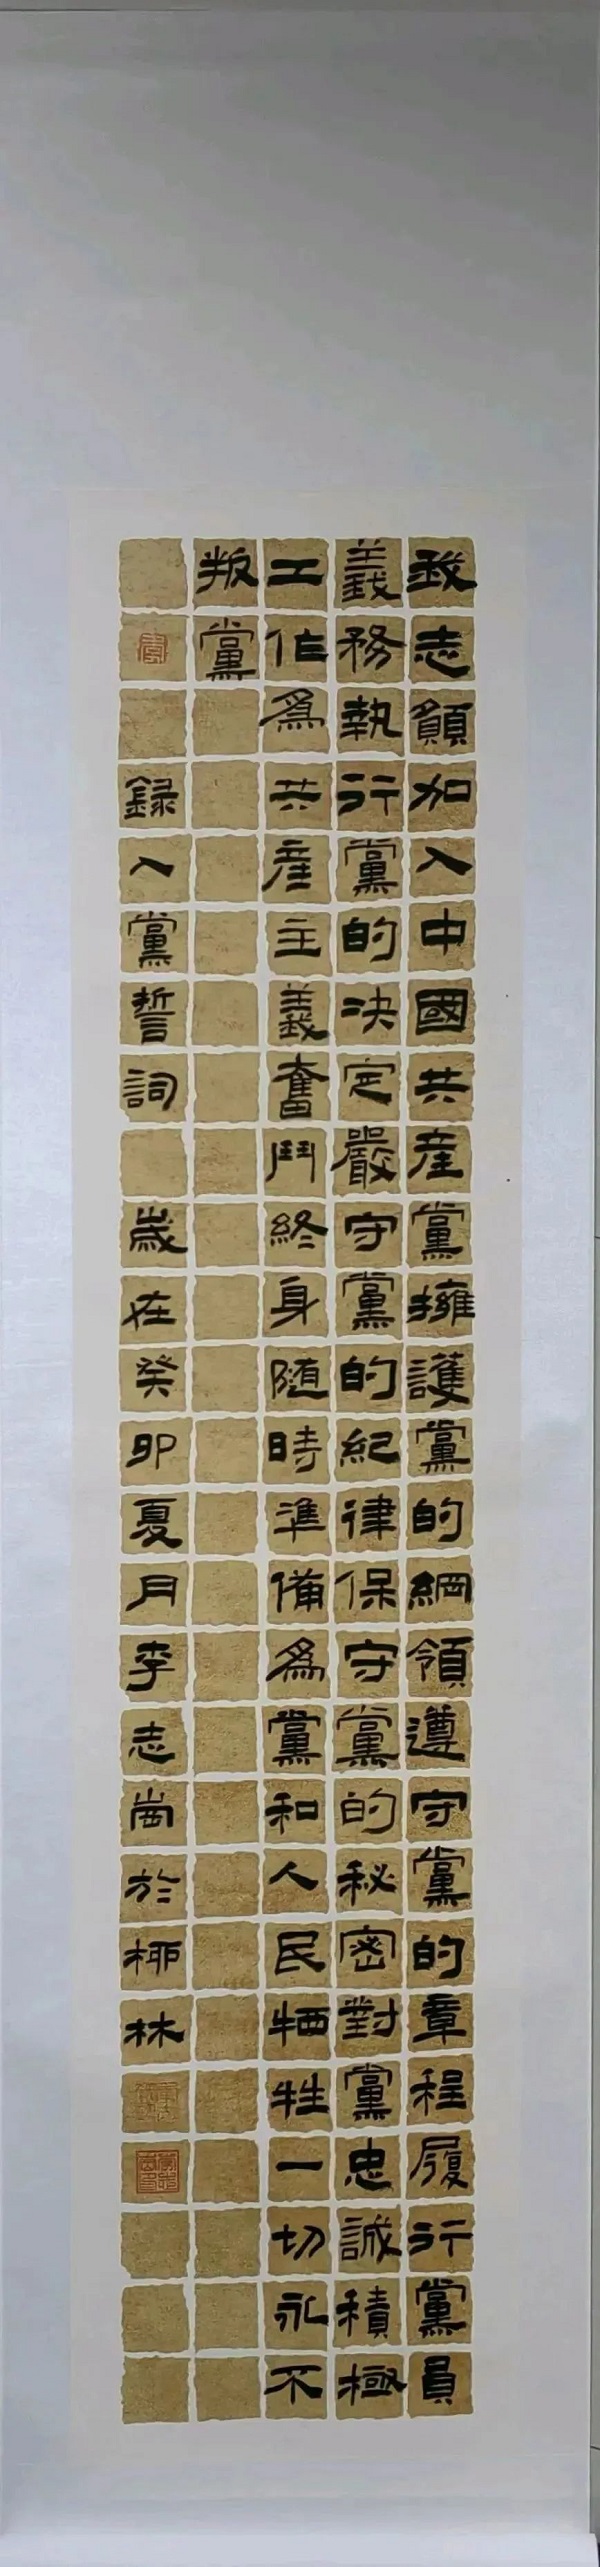 我志願加入中國共産黨擁護黨的綱領遵守黨的章程履行黨員
義務執行黨的决定嚴守黨的紀律保守黨的秘密對黨忠誠積極
工作爲共産主義奮鬥終身隨時準備爲黨和人民牺牲一切永不
叛黨
録入黨誓詞 歲在癸卯夏月李志崗於栁林